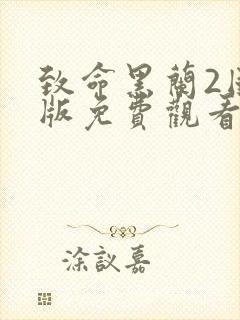 致命黑蘭2
版免費觀看
涂議嘉